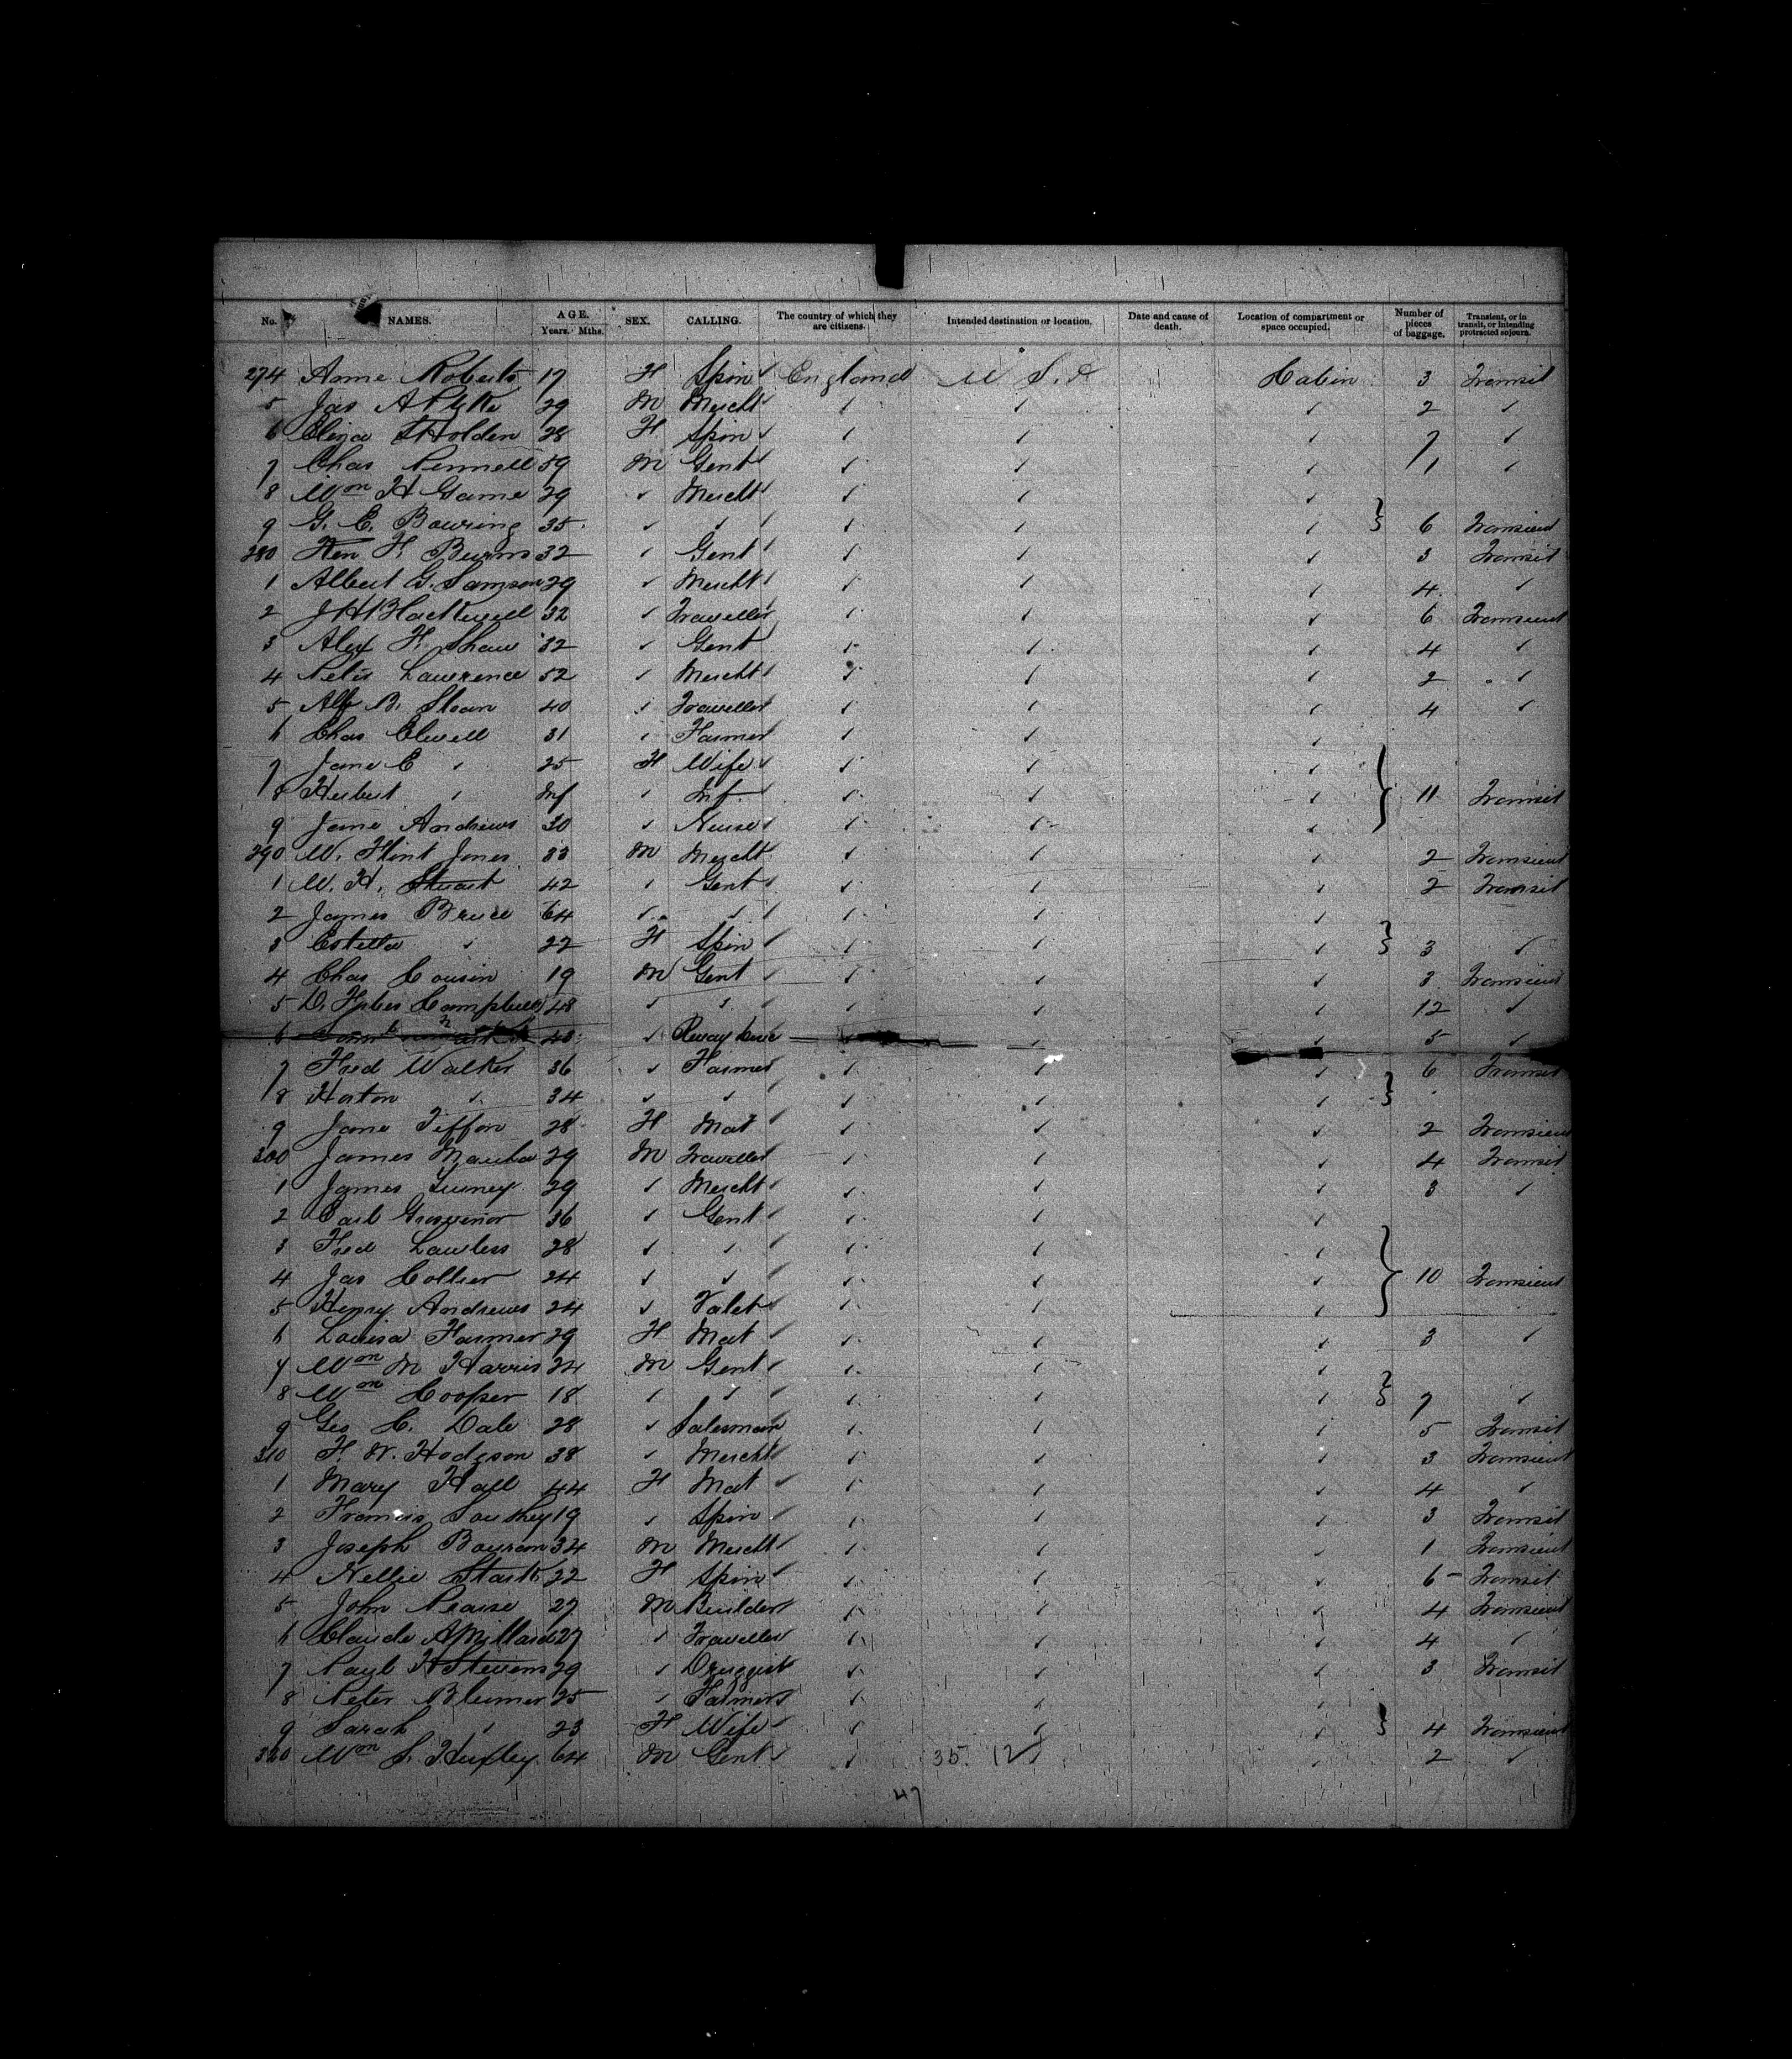 No. NAMES. AGE. Years. Mths. SEX. CALLING. The country of which they are citizens. Intended destination or location. Date and cause of death. Location of compartment or space occupied. Number of pieces of baggage. Transient, or in transit, or intending protracted sojourn.
274 Anne Roberts 17 F Spin ✓ England U S. A Cabin 3 Transit
5 Jas A Pyke 29 M Mercht ✓ ✓ ✓ ✓ 2 ✓
6 Eliza Holden 28 F Spin ✓ ✓ ✓ ✓ 7 ✓
7 Chas Pennell 59 M Gent ✓ ✓ ✓ ✓ 1 ✓
8 Wm H Game 29 ✓ Mercht ✓ ✓ ✓ ✓
9 G. C. Bowring 35 ✓ ✓ ✓ ✓ ✓ ✓ } 6 Transient
280 Hen F. Burns 32 ✓ Gent ✓ ✓ ✓ ✓ 3 Transit
1 Albert G. Sampson 29 ✓ Mercht ✓ ✓ ✓ ✓ 4 ✓
2 J H Hackwell 32 ✓ Traveller ✓ ✓ ✓ ✓ 6 Transient
3 Alex F. Shaw 32 ✓ Gent ✓ ✓ ✓ 4 ✓
4 Peter Lawrence 52 ✓ Mercht ✓ ✓ ✓ ✓ 2 ✓
5 Alf B. Sloan 40 ✓ Traveller ✓ ✓ ✓ 4 ✓
6 Chas Elwell 31 ✓ Farmer ✓ ✓ ✓
7 Jane E ✓ 25 F Wife ✓ ✓ ✓ ✓
8 Herbert ✓ Inf ✓ Inf. ✓ ✓ ✓ } 11 Transit
9 Jane Andrews 30 ✓ Nurse ✓ ✓ ✓ ✓
290 W. Flint Jones 33 M Mercht ✓ ✓ ✓ 2 Transient
1 W. H. Stuart 42 ✓ Gent ✓ ✓ ✓ ✓ 2 Transit
2 James Bruce 64 ✓ ✓ ✓ ✓ ✓ ✓
3 Estella ✓ 22 F Spin ✓ ✓ ✓ ✓ } 3 ✓
4 Chas Cousin 19 M Gent ✓ ✓ ✓ ✓ 3 Transient
5 D. Campbell 48 ✓ ✓ ✓ ✓ ✓ 12 ✓
6 43 ✓ ✓ ✓ 5 ✓
7 Fred Walker 36 ✓ Farmer ✓ ✓ ✓ 6 Transit
8 Horton ✓ 34 ✓ ✓ ✓ ✓ ✓ ✓ }
9 Jane Tiffon 28 F Mat ✓ ✓ ✓ ✓ 2 Transient
300 James 29 M Traveller ✓ ✓ ✓ 4 Transit
1 James Turney 29 ✓ Mercht ✓ ✓ ✓ ✓ 3 ✓
2 Earl Grosvenor 36 ✓ Gent ✓ ✓ ✓ ✓
3 Fred Lawless 28 ✓ ✓ ✓ ✓ ✓ ✓
4 Jas Collier 24 ✓ ✓ ✓ ✓ ✓ ✓ } 10 Transient
5 Henry Andrews 24 ✓ Valet ✓ ✓ ✓ ✓
6 Louisa Farmer 29 F Mat ✓ ✓ ✓ ✓ 3 ✓
7 Wm M Harris 24 M Gent ✓ ✓ ✓ ✓
8 Wm Cooper 18 ✓ ✓ ✓ ✓ ✓ ✓ } 7 ✓
9 Geo C. Dale 28 ✓ Salesman ✓ ✓ ✓ 5 Transit
310 F. W. Hodgson 38 ✓ Mercht ✓ ✓ ✓ 3 Transient
1 Mary Hall 44 F Mat ✓ ✓ ✓ ✓ 4 ✓
2 Francis Southey 19 ✓ Spin ✓ ✓ ✓ ✓ 3 Transit
3 Joseph 34 M Mercht ✓ ✓ ✓ 1 Transient
4 Nellie Stark 22 F Spin ✓ ✓ ✓ ✓ 6 Transit
5 John Pearse 27 M Builder ✓ ✓ ✓ 4 Transient
6 Claude A Millard 27 ✓ Traveller ✓ ✓ ✓ 4 ✓
7 H Stevens 29 ✓ Druggist ✓ ✓ ✓ 3 Transit
8 Peter Blumer 25 ✓ Farmer ✓ ✓ ✓
9 Sarah ✓ 23 F Wife ✓ ✓ ✓ ✓ } 4 Transient
320 Wm S. Huxley 64 M Gent ✓ ✓ 35. 12 ✓ ✓ 2 ✓
47